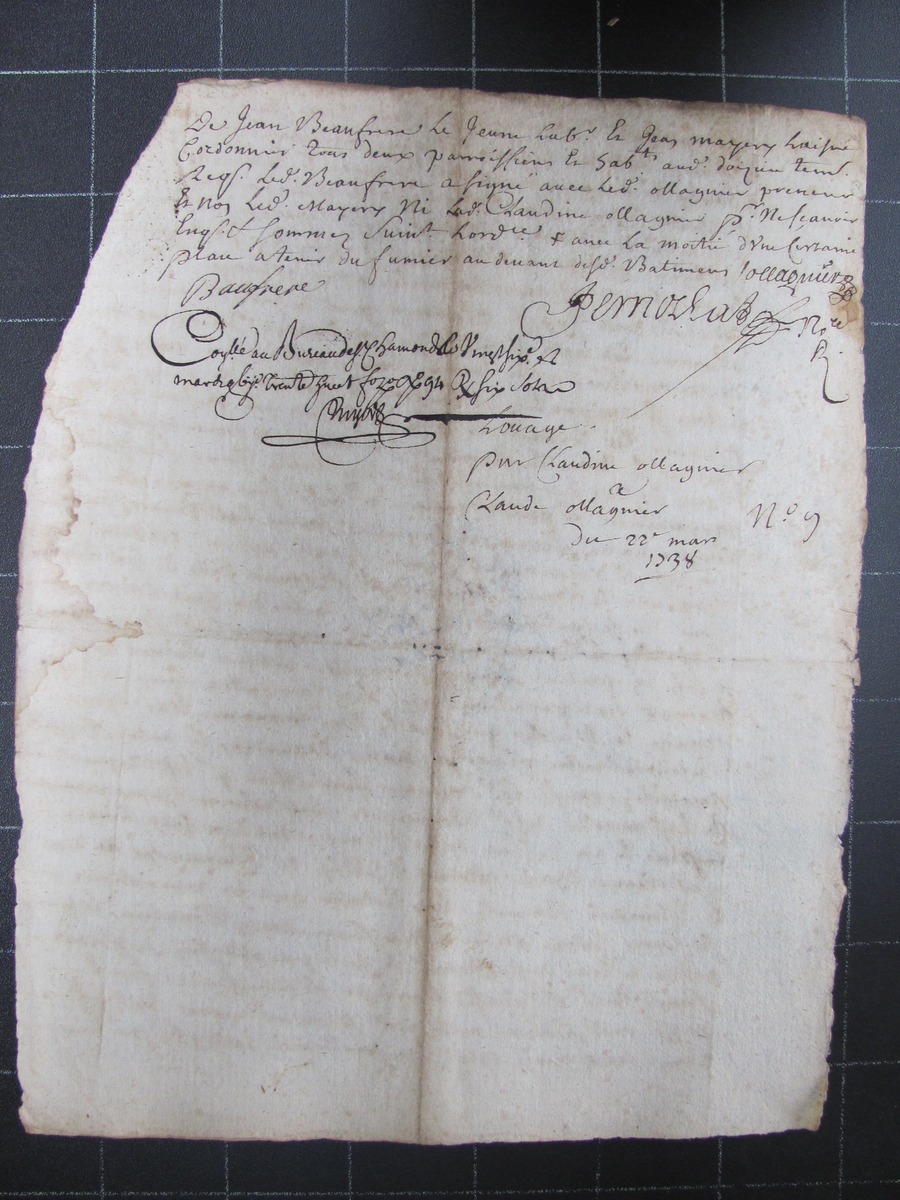 De Jean Beaufrere Le Jeune Labr. Et Jean mayery Laisné
Cordonnier tous deux parroissiens Et habts. aud. doizieu tem.
Reqs. Led. Beaufrere a signé avec Led. ollagnier preneur
Et non Led. Mayery Ni Lad. Claudine ollagnier pr. Ne sçavoir
Enqs. Et sommez suivt. Lordce. & avec La moitié d'Une Certaine
place a tenir du fumier au devant desd. Batimens ollagnier
Baufrere
Pernochat Nore.
R.
au Bureau de St. Chamond Le Vingt six
mars trente huit fo. 94 R six sols
Louage
par Claudine ollagnier
a
Claude ollagnier
No. 9
Du 22e mars
1738